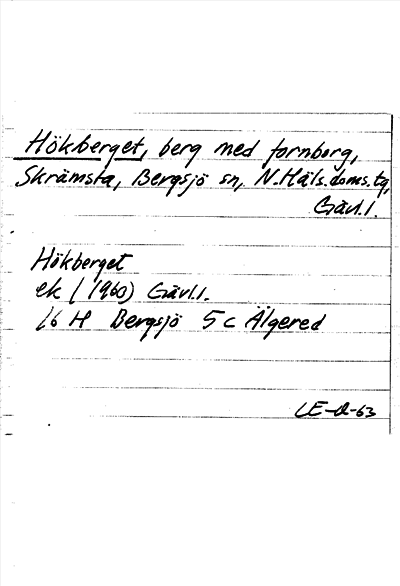 Hökberget, berg med fornborg,
Skrämsta, Bergsjö sn, N.Häls.doms.tg,
Gävl.l.
Hökberget
ek (1960) Gävl.l.
16 H Bergsjö 5c Älgered